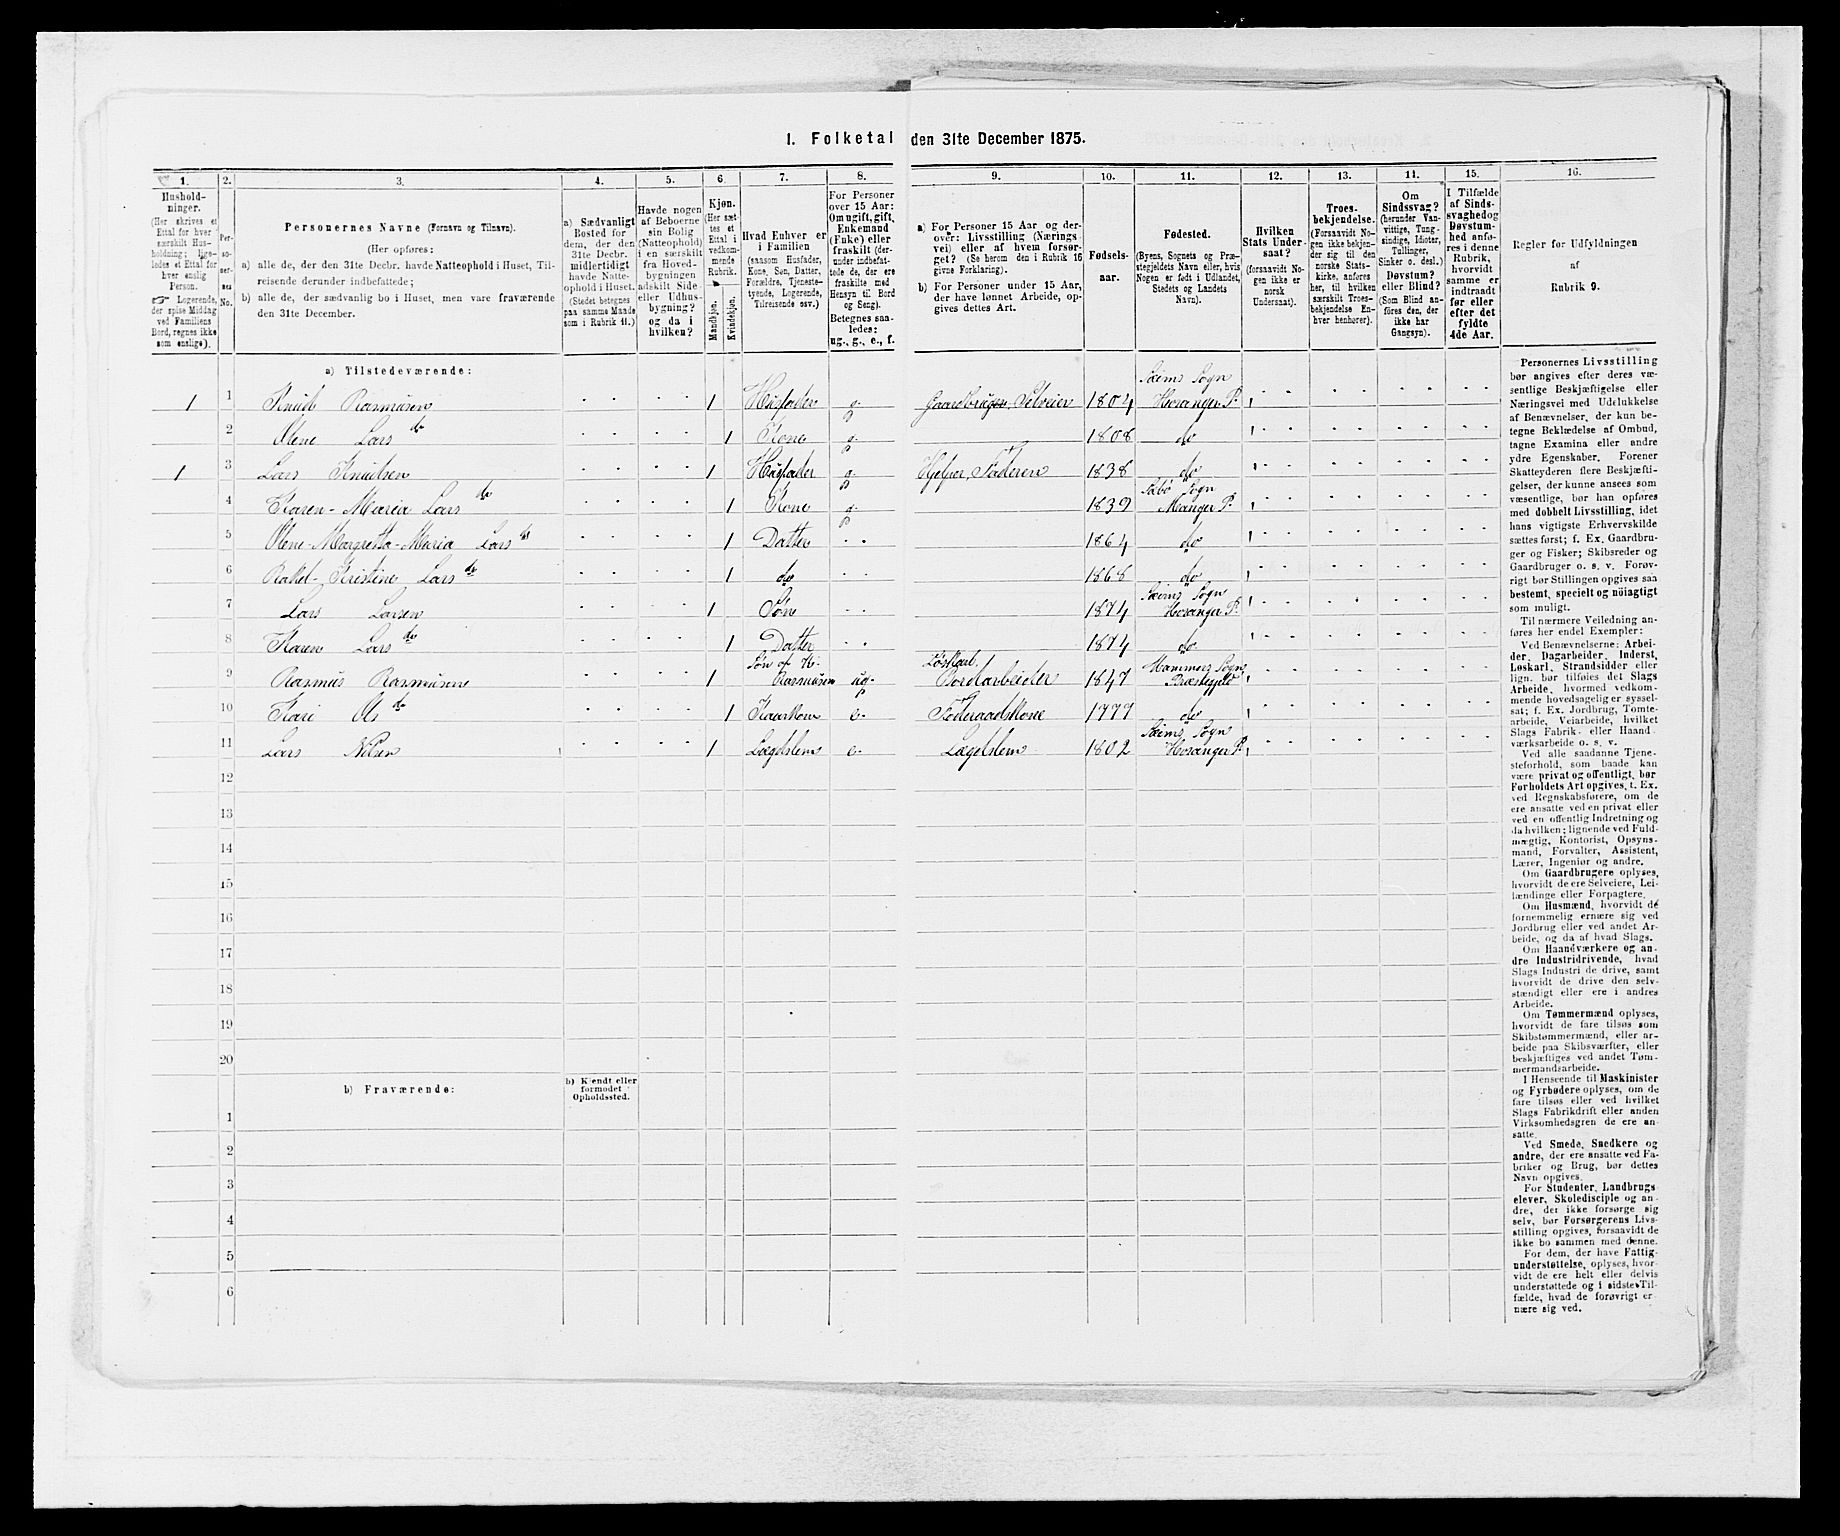 1. Folketal den 31te December 1875.
1.
2.
3.
4.
5.
6.
7.
8.
9.
10.
11.
12.
13.
14.
15.
16.
Hushold-
ninger.
(Her skrives et
Ettal for hver
særskilt Hus-
holdning; lige-
ledes et Ettal for
hver enslig
Person.
☞ Logerende,
der spise Middag
ved Familiens
Bord, regnes ikke
som enslige).
Per-
so-
ner-
nes
No.
Personernes Navne (Fornavn og Tilnavn).
(Her opføres:
a) alle de, der den 31te Decbr. havde Natteophold i Huset, Til-
reisende derunder indbefattede;
b) alle de, der sædvanlig bo i Huset, men vare fraværende
den 31te December.
a) Sædvanligt
Bosted for
dem, der den
31te Decbr.
midlertidigt
havde Natte-
ophold i Huset.
(Stedet betegnes
paa samme Maade
som i Rubrik 11.)
Havde nogen
af Beboerne
sin Bolig
(Natteophold)
i en særskilt
fra Hoved-
bygningen
adskilt Side-
eller Udhus-
bygning?
og da i
hvilken?
Kjøn.
(Her sæt-
tes et
Ettal i
vedkom-
mende
Rubrik.
Mandkjøn.
Kvindekjøn.
Hvad Enhver er
i Familien
(saasom Husfader,
Kone, Søn, Datter,
Forældre, Tjeneste-
tyende, Logerende,
Tilreisende osv.)
For Personer
over 15 Aar:
Om ugift, gift,
Enkemand
(Enke) eller
fraskilt (der-
under indbefat-
tede de, der ere
fraskilte med
Hensyn til Bord
og Seng).
Betegnes saa-
ledes:
ug., g., e., f.
a) For Personer 15 Aar og der-
over: Livsstilling (Nærings
vei) eller af hvem forsør-
get? (Se herom den i Rubrik 16
givne Forklaring).
b) For Personer under 15 Aar,
der have lønnet Arbeide, op-
gives dettes Art.
Fødsels-
aar.
Fødested.
(Byens, Sognets og Præ-
stegjeldets Navn eller, hvis
Nogen er født i Udlandet,
Stedets og Landets
Navn).
Hvilken
Stats Under-
saat?
(forsaavidt No-
gen ikke er
norsk
Undersaat).
Troes-
bekjendelse.
(Forsaavidt No-
gen ikke bekjen-
der sig til den
norske Stats-
kirke, anføres
her, til hvilken
særskilt Troes-
bekjendelse En-
hver henhører).
Om
Sindssvag?
(herunder Van-
vittige, Tung-
sindige, Idioter,
Tullinger,
Sinker o. desl.)
Døvstum?
eller Blind?
(Som Blind an-
føres den, der
ikke har
Gangsyn).
I Tilfælde
af Sinds-
svaghed og
Døvstum-
hed anfø-
res i denne
Rubrik,
hvorvidt
samme er
indtraadt
før eller
efter det
fyldte
4de Aar.
Regler for Udfyldningen
af
Rubrik 9.
a) Tilstedeværende:
1 1 Knud Rasmusen 1 Husfader g. Gaardbruger, Selveier 1804 Sæims Sogn Hosanger P.
2 Olene Larsdr 1 Kone g. 1808 do
1 3 Lars Knudsen 1 Husfader g. Hjelper Faderen 1838 do
4 Karen-Maria Larsdr 1 Kone g. 1839 Sæbø Sogn Manger P.
5 Olene-Margretha-Maria Larsdr 1 Datter 1864 do
6 Rakel-Kristine Larsdr 1 do 1868 do
7 Lars Larsen 1 Søn 1874 Sæims Sogn Hosanger P.
8 Karen Larsdr 1 Datter 1874 do
9 Rasmus Rasmusen 1 Søn af K. Rasmusen ug. Løskarl, Jordarbeider 1847 Hammers Sogn Præstegjeld
10 Kari Olsdr 1 e. Føderaadskone 1777 do
11 Lars Nilsen 1 Lægdslem e. Lægdslem 1802 Sæims Sogn Hosanger P.
12
13
14
15
16
17
18
19
20
b) Fraværende:
b) Kjendt eller
formodet
Opholdssted.
1
2
3
4
5
6
Personernes Livsstilling
bør angives efter deres væ-
sentlige Beskjæftigelse eller
Næringsvei med Udelukkelse
af Benævnelser, der kun be-
tegne Beklædelse af Ombud,
tagne Examina eller andre
ydre Egenskaber. Forener
Skatteyderen flere Beskjæfti-
gelser, der kunne ansees som
væsentlige, bør han opføres
med dobbelt Livsstilling, idet
hans vigtigste Erhvervskilde
sættes først; f. Ex. Gaardbru-
ger og Fisker; Skibsreder og
Gaardbruger o. s. v. Forøv-
rigt bør Stillingen opgives saa
bestemt, specielt og nöiagtigt
som muligt.
Til nærmere Veiledning an-
føres her endel Exempler:
Ved Benævnelserne: Arbei-
der, Dagarbeider, Inderst,
Løskarl, Strandsidder eller
lign. bør tilføies det Slags
Arbeide, hvormed vedkom-
mende hovedsagelig er syssel-
sat; f. Ex. Jordbrug, Tomte-
arbeide, Veiarbeide, hvilket
Slags Fabrik- eller Haand
værksarbeide o. s. v.
Ved alle saadanne Tjene-
steforhold, som baade kan
være privat og offentligt, bør
Forholdets Art opgives, t. Ex.
ved Regnskabsførere, om de
ere ansatte ved en privat eller
ved en offentlig Indretning og
da hvilken; lignende ved Fuld-
mægtig, Kontorist, Opsyns-
mand, Forvalter, Assistent,
Lærer, Ingeniør og andre.
Om Gaardbrugere oplyses,
hvorvidt de ere Selveiere, Lei-
lændinge eller Forpagtere.
Om Husmænd, hvorvidt de
fornemmelig ernære sig ved
Jordbrug eller ved andet Ar-
beide, og da af hvad Slags.
Om Haandværkere og an-
dre Industridrivende, hvad
Slags Industri de drive, samt
hvorvidt de drive den selv-
stændigt eller ere i andres
Arbeide.
Om Tømmermænd oplyses,
hvorvidt de fare tilsøs som
Skibstømmermænd, eller ar-
beide paa Skibsværfter, eller
beskjæftiges ved andet Tøm-
mermandsarbeide.
I Henseende til Maskinister
og Fyrbødere oplyses, om de
fare tilsøs eller ved hvilket
Slags Fabrikdrift eller anden
Virksomhedsgren de ere an-
satte.
Ved Smede, Snedkere og
andre, der ere ansatte ved Fa-
briker og Brug, bør dettes
Navn opgives.
For Studenter, Landbrugs-
elever, Skoledisciple og an-
dre, der ikke forsørge sig
selv, bør Forsørgerens Livs-
stilling opgives, forsaavidt de
ikke bo sammen med denne.
For dem, der have Fattig-
understøttelse, oplyses, hvor-
vidt de ere helt eller delvis
understøttede og i sidste Til-
fælde, hvad de forøvrigt er-
nære sig ved.